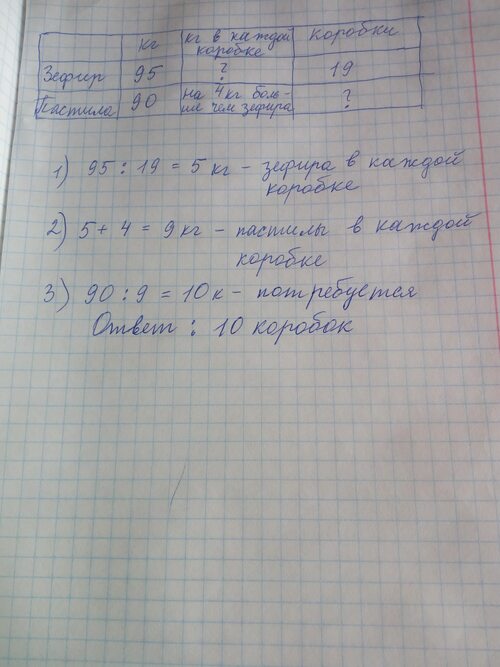 кг | кг в каждой коробке | коробки
Зефир | 95 | ? | 19
Пастила | 90 | на 4кг боль-ше чем зефира | ?
1) 95 : 19 = 5 кг - зефира в каждой
коробке
2) 5 + 4 = 9 кг - пастилы в каждой
коробке
3) 90 : 9 = 10 к - потребуется
Ответ : 10 коробок